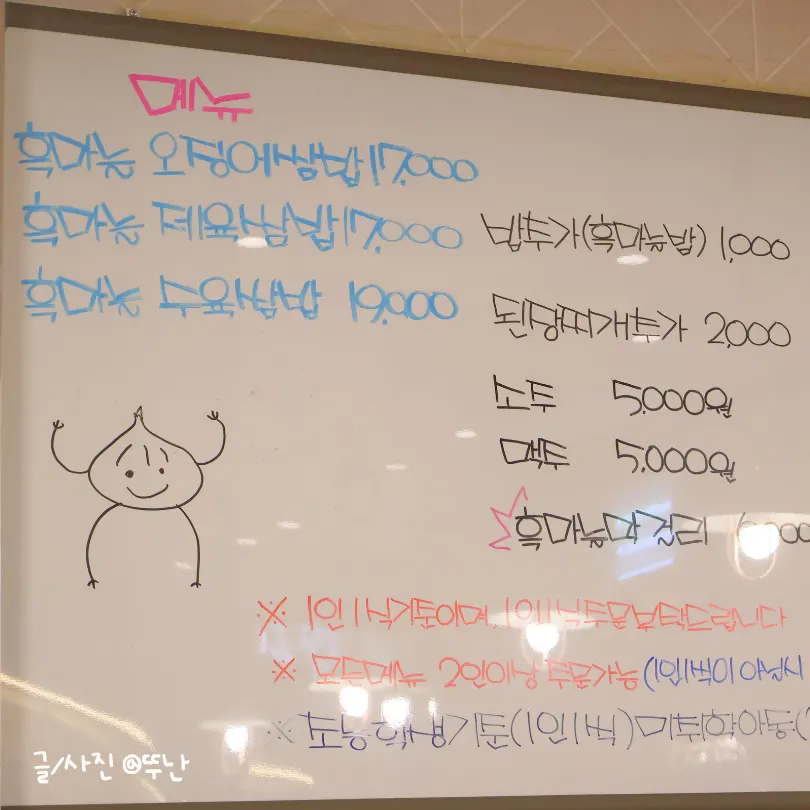 메뉴
흑마늘 오징어쌈밥 17,000
흑마늘 제육쌈밥 17,000
흑마늘 수육쌈밥 19,000
밥추가(흑마늘밥) 1,000
된장찌개추가 2,000
소주 5,000원
맥주 5,000원
흑마늘막걸리
※ 1인 1식기준이며, 1인1식주문부탁드립니다
※ 모든메뉴 2인이상 주문가능 (1인1식이 아닐시
※ 초등학생기준(1인1식) 미취학아동(
글/사진 @뚜난